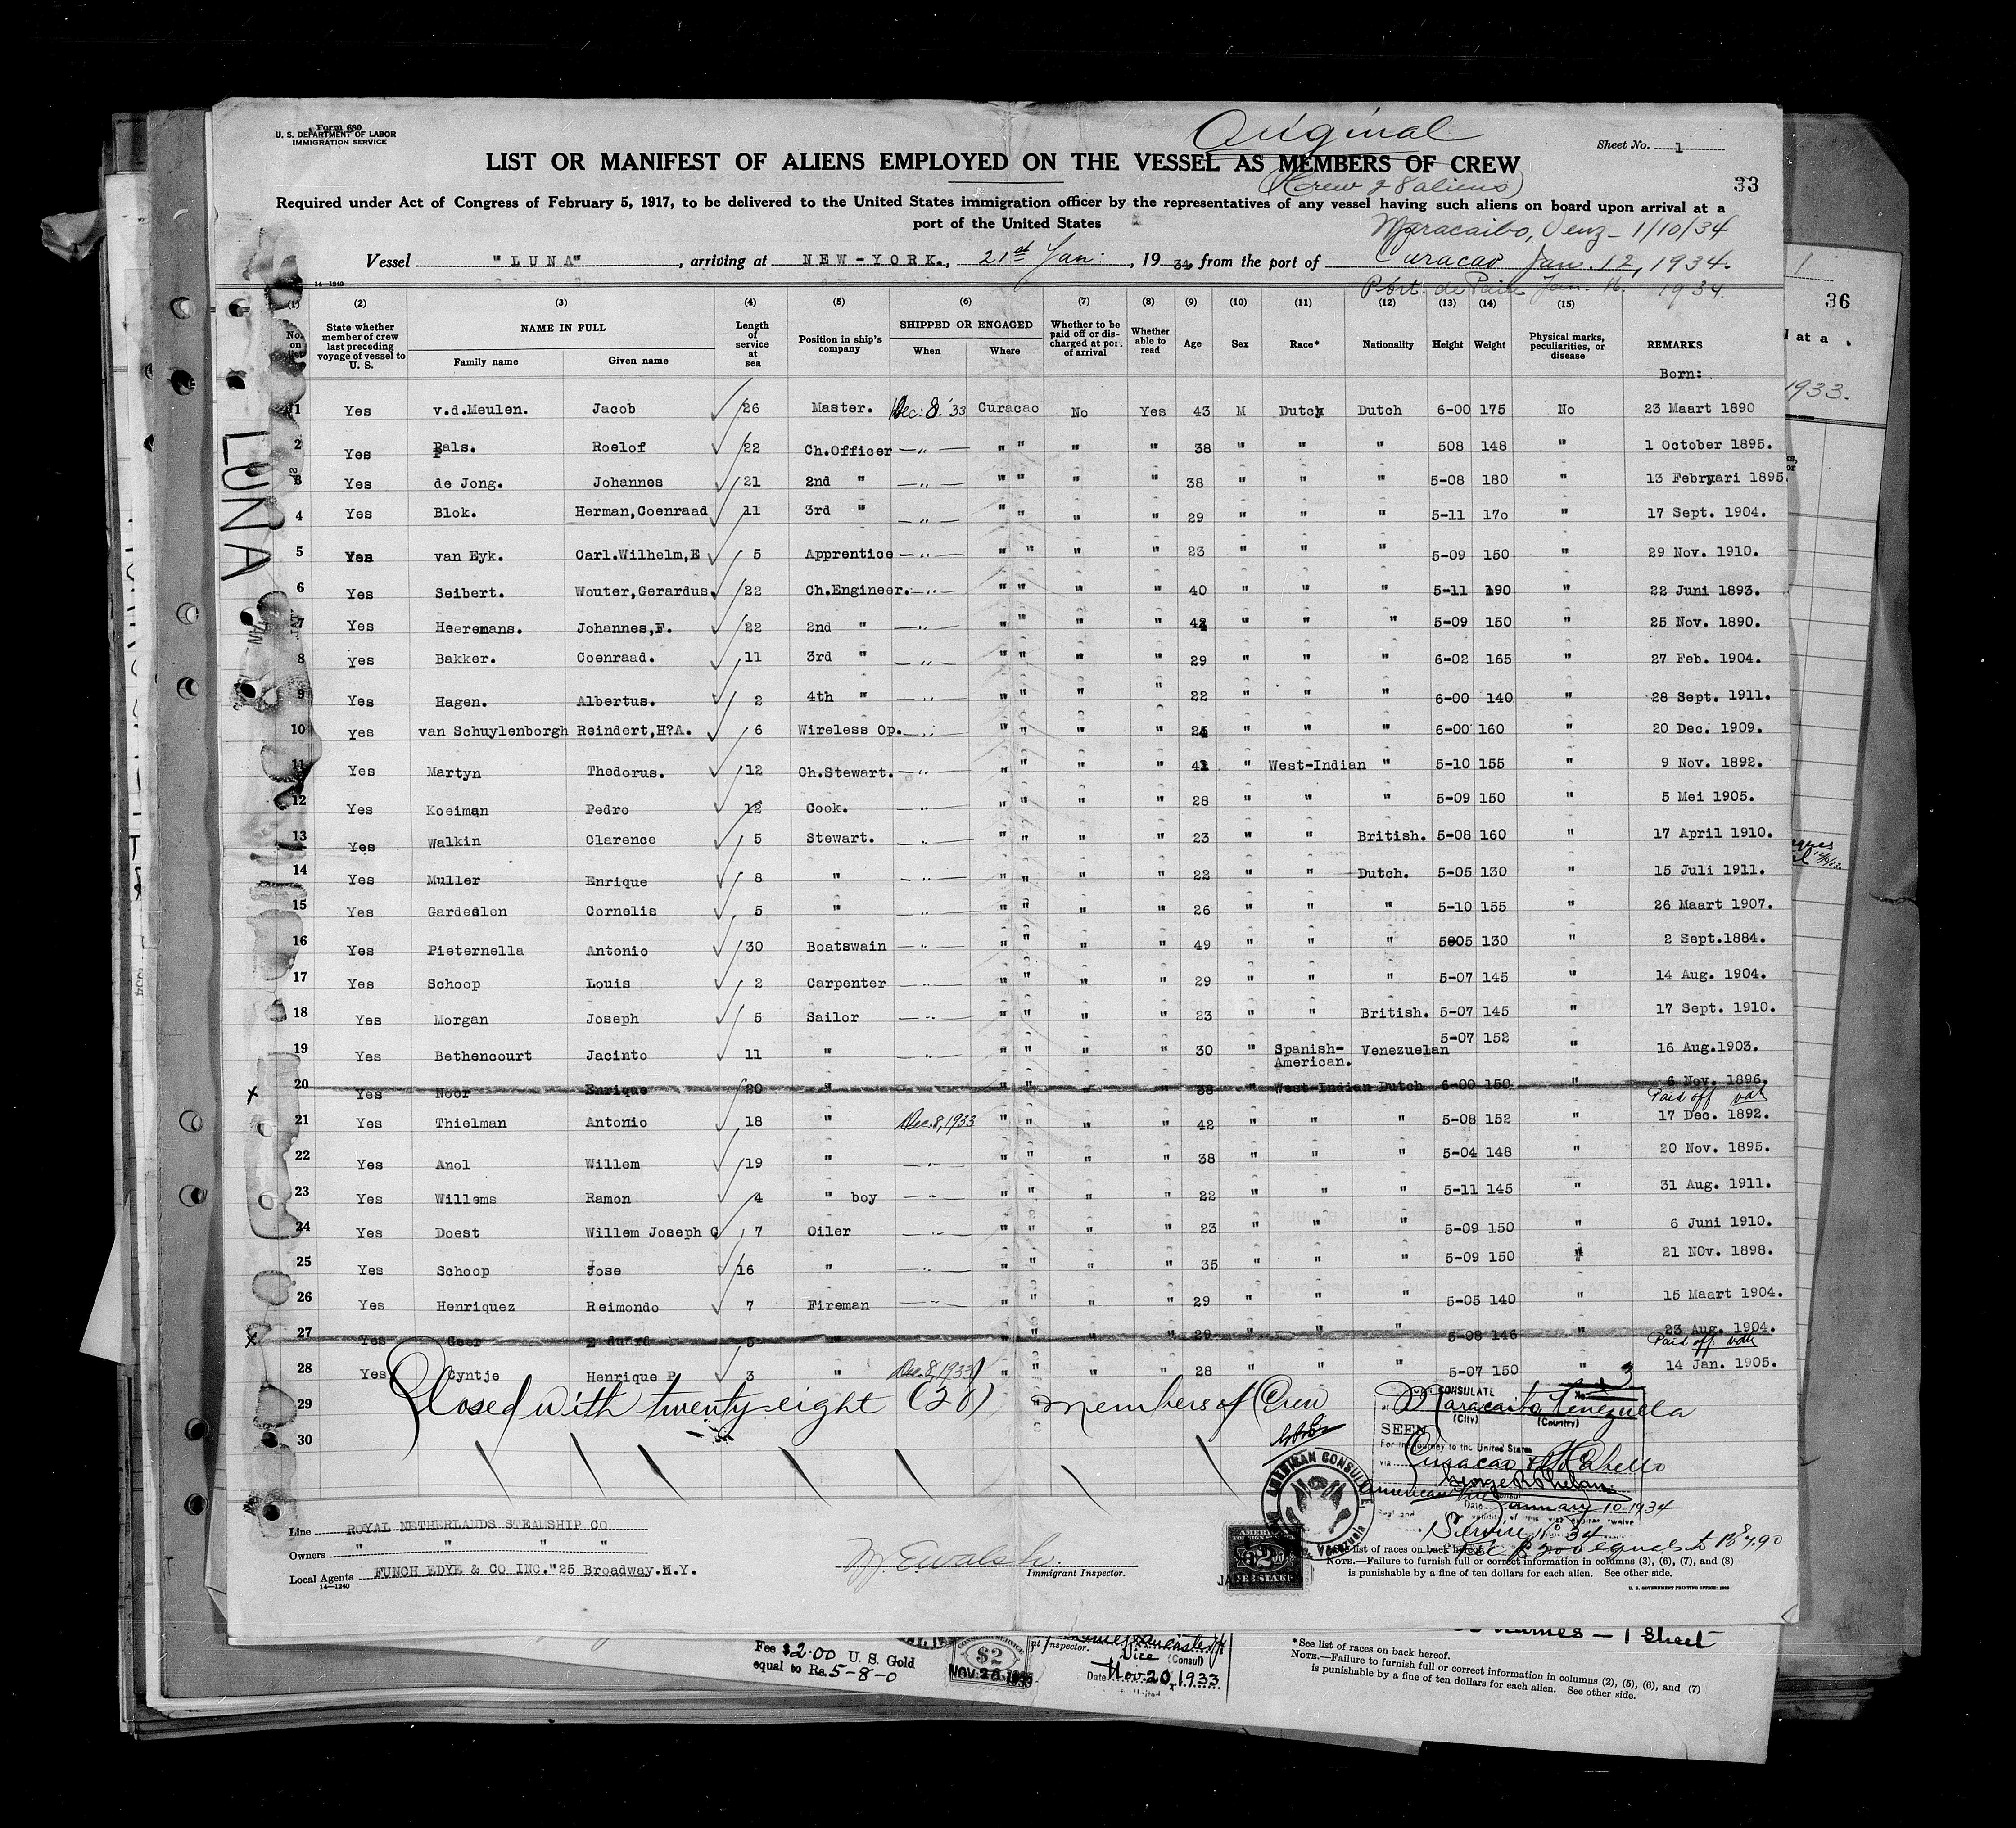 Form 680
U. S. DEPARTMENT OF LABOR
IMMIGRATION SERVICE
Original
Sheet No. 1
LIST OR MANIFEST OF ALIENS EMPLOYED ON THE VESSEL AS MEMBERS OF CREW
(Crew 28 aliens)
33
Required under Act of Congress of February 5, 1917, to be delivered to the United States immigration officer by the representatives of any vessel having such aliens on board upon arrival at a
port of the United States
Maracaibo, Venz - 1/10/34
Vessel "LUNA", arriving at NEW-YORK., 21st Jan: , 1934, from the port of Curacao Jan. 12, 1934.
14-1240
Jan. 16. 1934.
(1) (2) (3) (4) (5) (6) (7) (8) (9) (10) (11) (12) (13) (14) (15)
No. on list State whether member of crew last preceding voyage of vessel to U. S. NAME IN FULL Family name Given name Length of service at sea Position in ship's company SHIPPED OR ENGAGED When Where Whether to be paid off or discharged at port of arrival Whether able to read Age Sex Race* Nationality Height Weight Physical marks, peculiarities, or disease REMARKS
Born:
1 Yes v.d.Meulen. Jacob 26 Master. Dec: 8. '33 Curacao No Yes 43 M Dutch Dutch 6-00 175 No 23 Maart 1890
2 Yes Pals. Roelof 22 Ch.Officer —"— " " " " 38 " " " 508 148 " 1 October 1895.
3 Yes de Jong. Johannes 21 2nd " —"— " " " " 38 " " " 5-08 180 " 13 Februari 1895.
4 Yes Blok. Herman,Coenraad 11 3rd " —"— " " " " 29 " " " 5-11 170 " 17 Sept. 1904.
5 Yes van Eyk. Carl.Wilhelm,E 5 Apprentice —"— " " " " 23 " " " 5-09 150 " 29 Nov. 1910.
6 Yes Seibert. Wouter,Gerardus. 22 Ch.Engineer. —"— " " " " 40 " " " 5-11 190 " 22 Juni 1893.
7 Yes Heeremans. Johannes,F. 22 2nd " —"— " " " " " " " 5-09 150 " 25 Nov. 1890.
8 Yes Bakker. Coenraad. 11 3rd " —"— " " " " 29 " " " 6-02 165 " 27 Feb. 1904.
9 Yes Hagen. Albertus. 2 4th " " " " " 22 " " " 6-00 140 " 28 Sept. 1911.
10 Yes van Schuylenborgh Reindert,H?A. 6 Wireless Op. —"— " " " " " " " 6-00 160 " 20 Dec. 1909.
11 Yes Martyn Thedorus. 12 Ch.Stewart. —"— " " " " " West-Indian " 5-10 155 " 9 Nov. 1892.
12 Yes Koeiman Pedro 12 Cook. " " " " 28 " " " 5-09 150 " 5 Mei 1905.
13 Yes Walkin Clarence 5 Stewart. —"— " " " " 23 " " British. 5-08 160 " 17 April 1910.
14 Yes Muller Enrique 8 " —"— " " " " 22 " " Dutch. 5-05 130 " 15 Juli 1911.
15 Yes Gardeslen Cornelis 5 " —"— " " " " 26 " " " 5-10 155 " 26 Maart 1907.
16 Yes Pieternella Antonio 30 Boatswain —"— " " " " 49 " " " 5-05 130 " 2 Sept.1884.
17 Yes Schoop Louis 2 Carpenter —"— " " " " 29 " " " 5-07 145 " 14 Aug. 1904.
18 Yes Morgan Joseph 5 Sailor —"— " " " " 23 " " British. 5-07 145 " 17 Sept. 1910.
19 Yes Bethencourt Jacinto 11 " —"— " " " " 30 " Spanish-American. Venezuelan 5-07 152 " 16 Aug.1903.
x 20 Yes Noor Enrique 20 " " " " " 38 " West-Indian Dutch 6-00 150 " 6 Nov. 1896.
Paid off
21 Yes Thielman Antonio 18 " Dec. 8, 1933 " " " " 42 " " " 5-08 152 " 17 Dec. 1892.
22 Yes Anol Willem 19 " —"— " " " " 38 " " " 5-04 148 " 20 Nov. 1895.
23 Yes Willems Ramon 4 " boy —"— " " " " 22 " " " 5-11 145 " 31 Aug. 1911.
24 Yes Doest Willem Joseph C 7 Oiler —"— " " " " 23 " " " 5-09 150 " 6 Juni 1910.
25 Yes Schoop Jose 16 " —"— " " " " 35 " " " 5-09 150 " 21 NOv. 1898.
26 Yes Henriquez Reimondo 7 Fireman —"— " " " " 29 " " " 5-05 140 " 15 Maart 1904.
x 27 Yes Geer Eduard 5 " " " " " 29 " " " 5-08 146 " 23 Aug. 1904.
Paid off
28 Yes Cyntje Henrique P 3 " Dec. 8, 1933 " " " " 28 " " " 5-07 150 " 14 Jan. 1905.
29 Closed with twenty-eight (28) members of Crew
30
LUNA
CONSULATE
Maracaibo, Venezuela
(City) (Country)
SEEN
For the journey to the United States
via Curacao & Pto Cabello
George R. Phelan
American Vice Consul
Date January 10 1934
Service No 34
AMERICAN CONSULATE
Venezuela
AMERICAN
$2.00
FEE STAMP
Line ROYAL NETHERLANDS STEAMSHIP CO
Owners " " " "
Local Agents FUNCH EDYE & CO INC."25 Broadway.N.Y.
14-1240
M. E. Walsh.
Immigrant Inspector.
list of races on back hereof.
NOTE.—Failure to furnish full or correct information in columns (3), (6), (7), and (8)
is punishable by a fine of ten dollars for each alien. See other side.
U. S. GOVERNMENT PRINTING OFFICE
36
d at a
1933.
Fee $2.00 U. S. Gold
equal to Rs. 5-8-0
$2
NOV 20 1933
Inspector.
Vice (Consul)
Date Nov. 20, 1933
names — 1 Sheet
*See list of races on back hereof.
NOTE.—Failure to furnish full or correct information in columns (2), (5), (6), and (7)
is punishable by a fine of ten dollars for each alien. See other side.